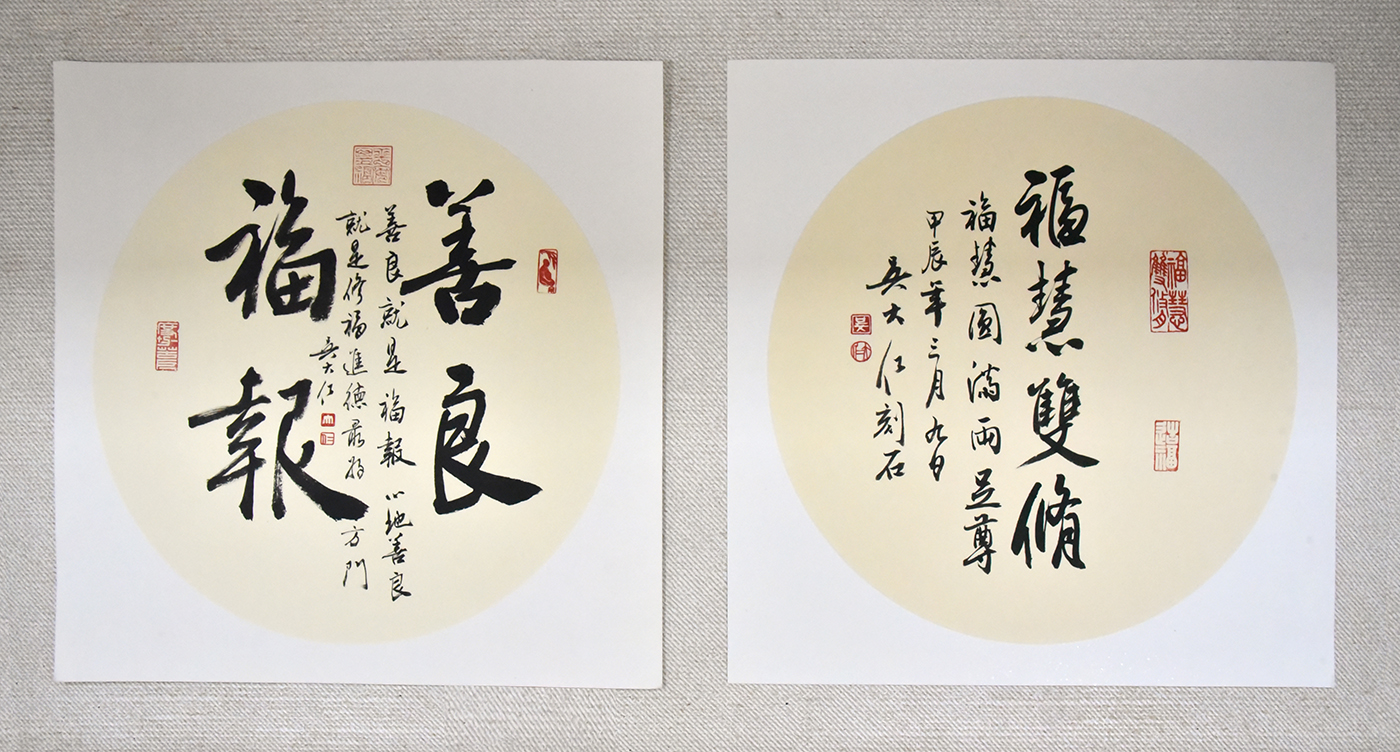 善良
福報
善良就是福報心地善良
就是修福進德最好方門
吳大仁
福慧雙脩
福慧圓滿兩足尊
甲辰年三月九日
吳大仁刻石
福慧雙脩
造福
吳